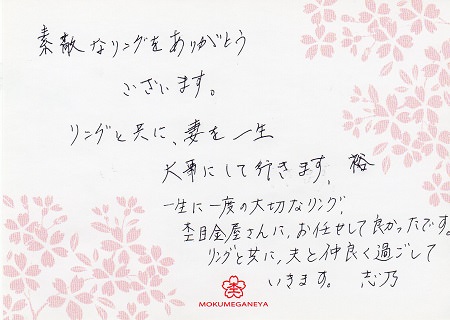 素敵なリングをありがとう
ございます。
リングと共に、妻を一生
大事にして行きます。 裕
一生に一度の大切なリング!
杢目金屋さんに、お任せして良かったです。
リングと共に、夫と仲良く過ごして
いきます。 志乃
杢
MOKUMEGANEYA